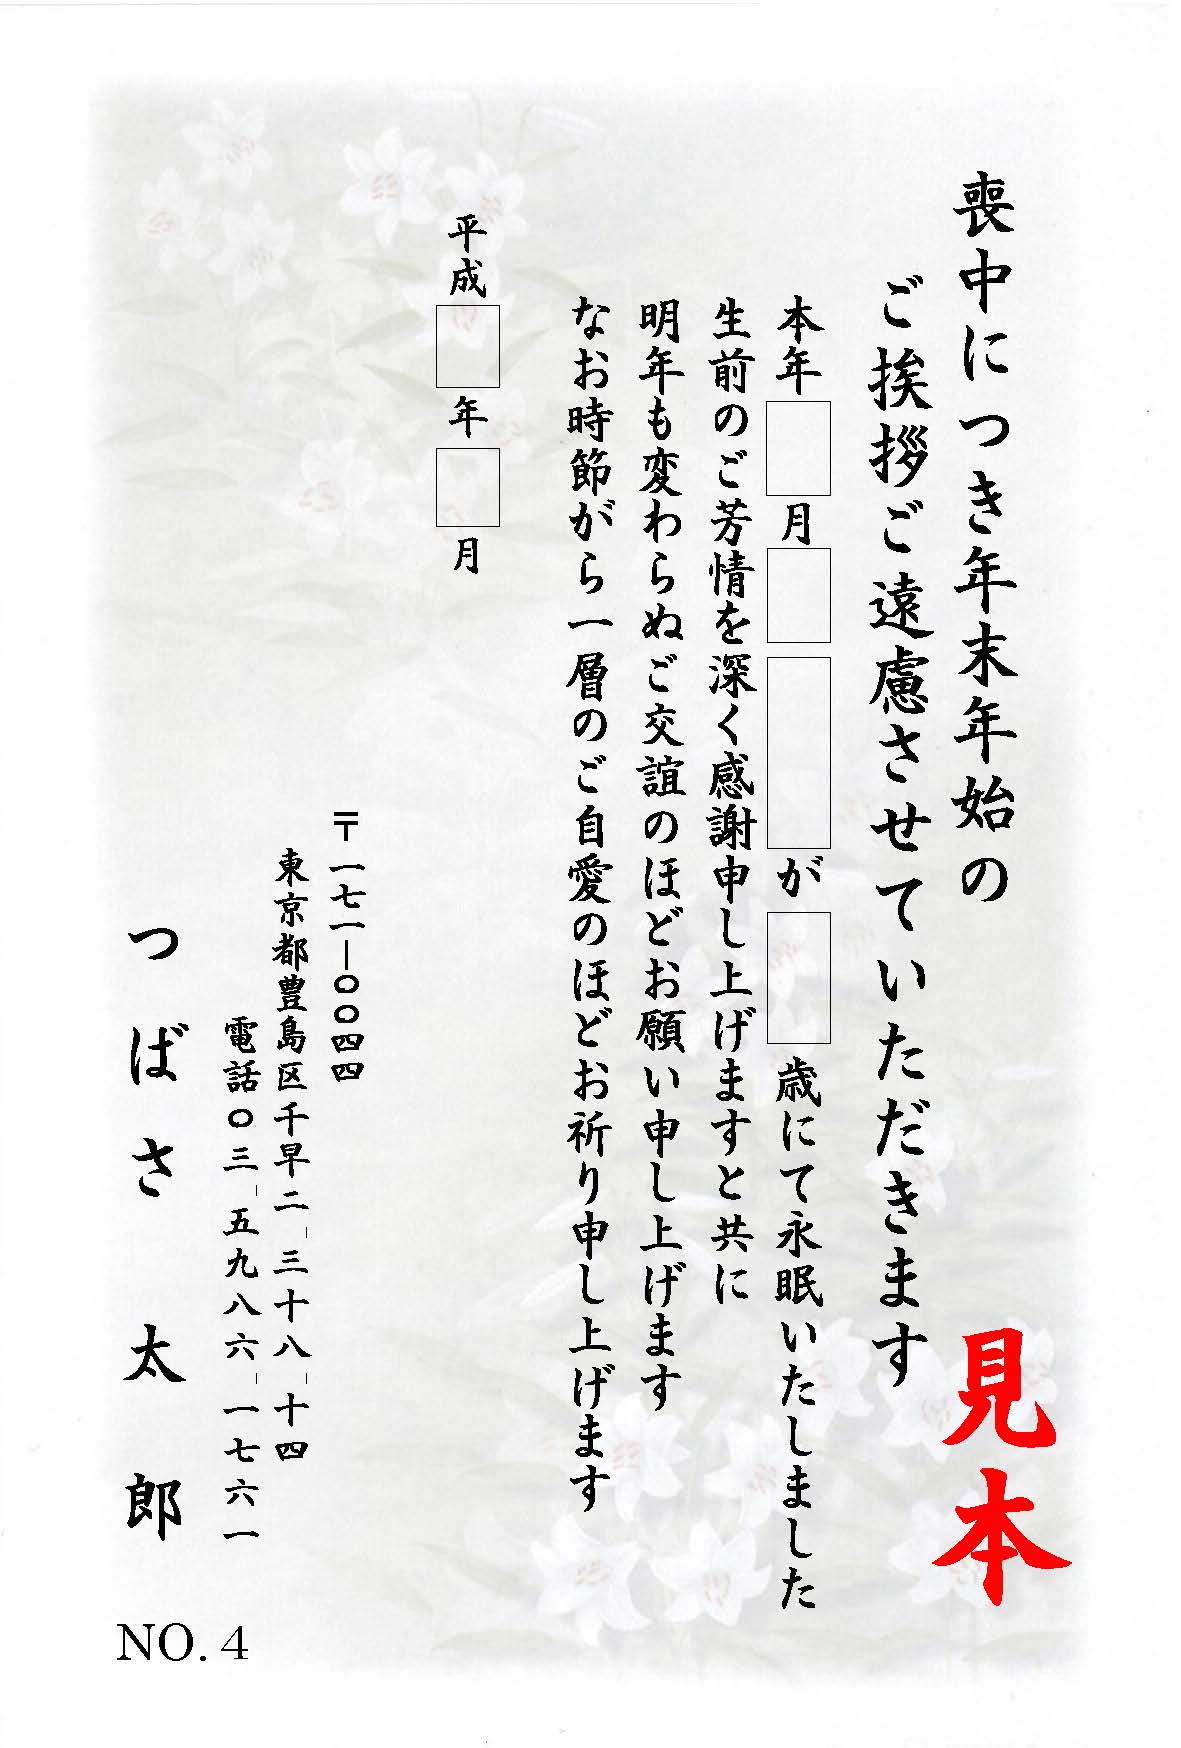 喪中につき年末年始の
ご挨拶ご遠慮させていただきます
本年 月 が 歳にて永眠いたしました
生前のご芳情を深く感謝申し上げますと共に
明年も変わらぬご交誼のほどお願い申し上げます
なお時節がら一層のご自愛のほどお祈り申し上げます
平成 年 月
〒一七一―〇〇四四
東京都豊島区千早二-三十八-十四
電話〇三-五九八六-一七六一
つばさ 太郎
見本
NO.4